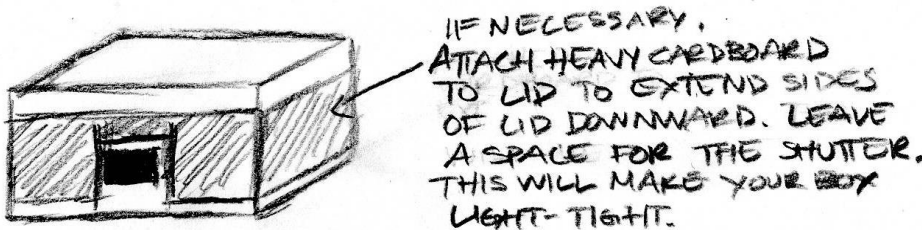 IF NECESSARY.
ATTACH HEAVY CARDBOARD
TO LID TO EXTEND SIDES
OF LID DOWNWARD. LEAVE
A SPACE FOR THE SHUTTER.
THIS WILL MAKE YOUR BOX
LIGHT-TIGHT.